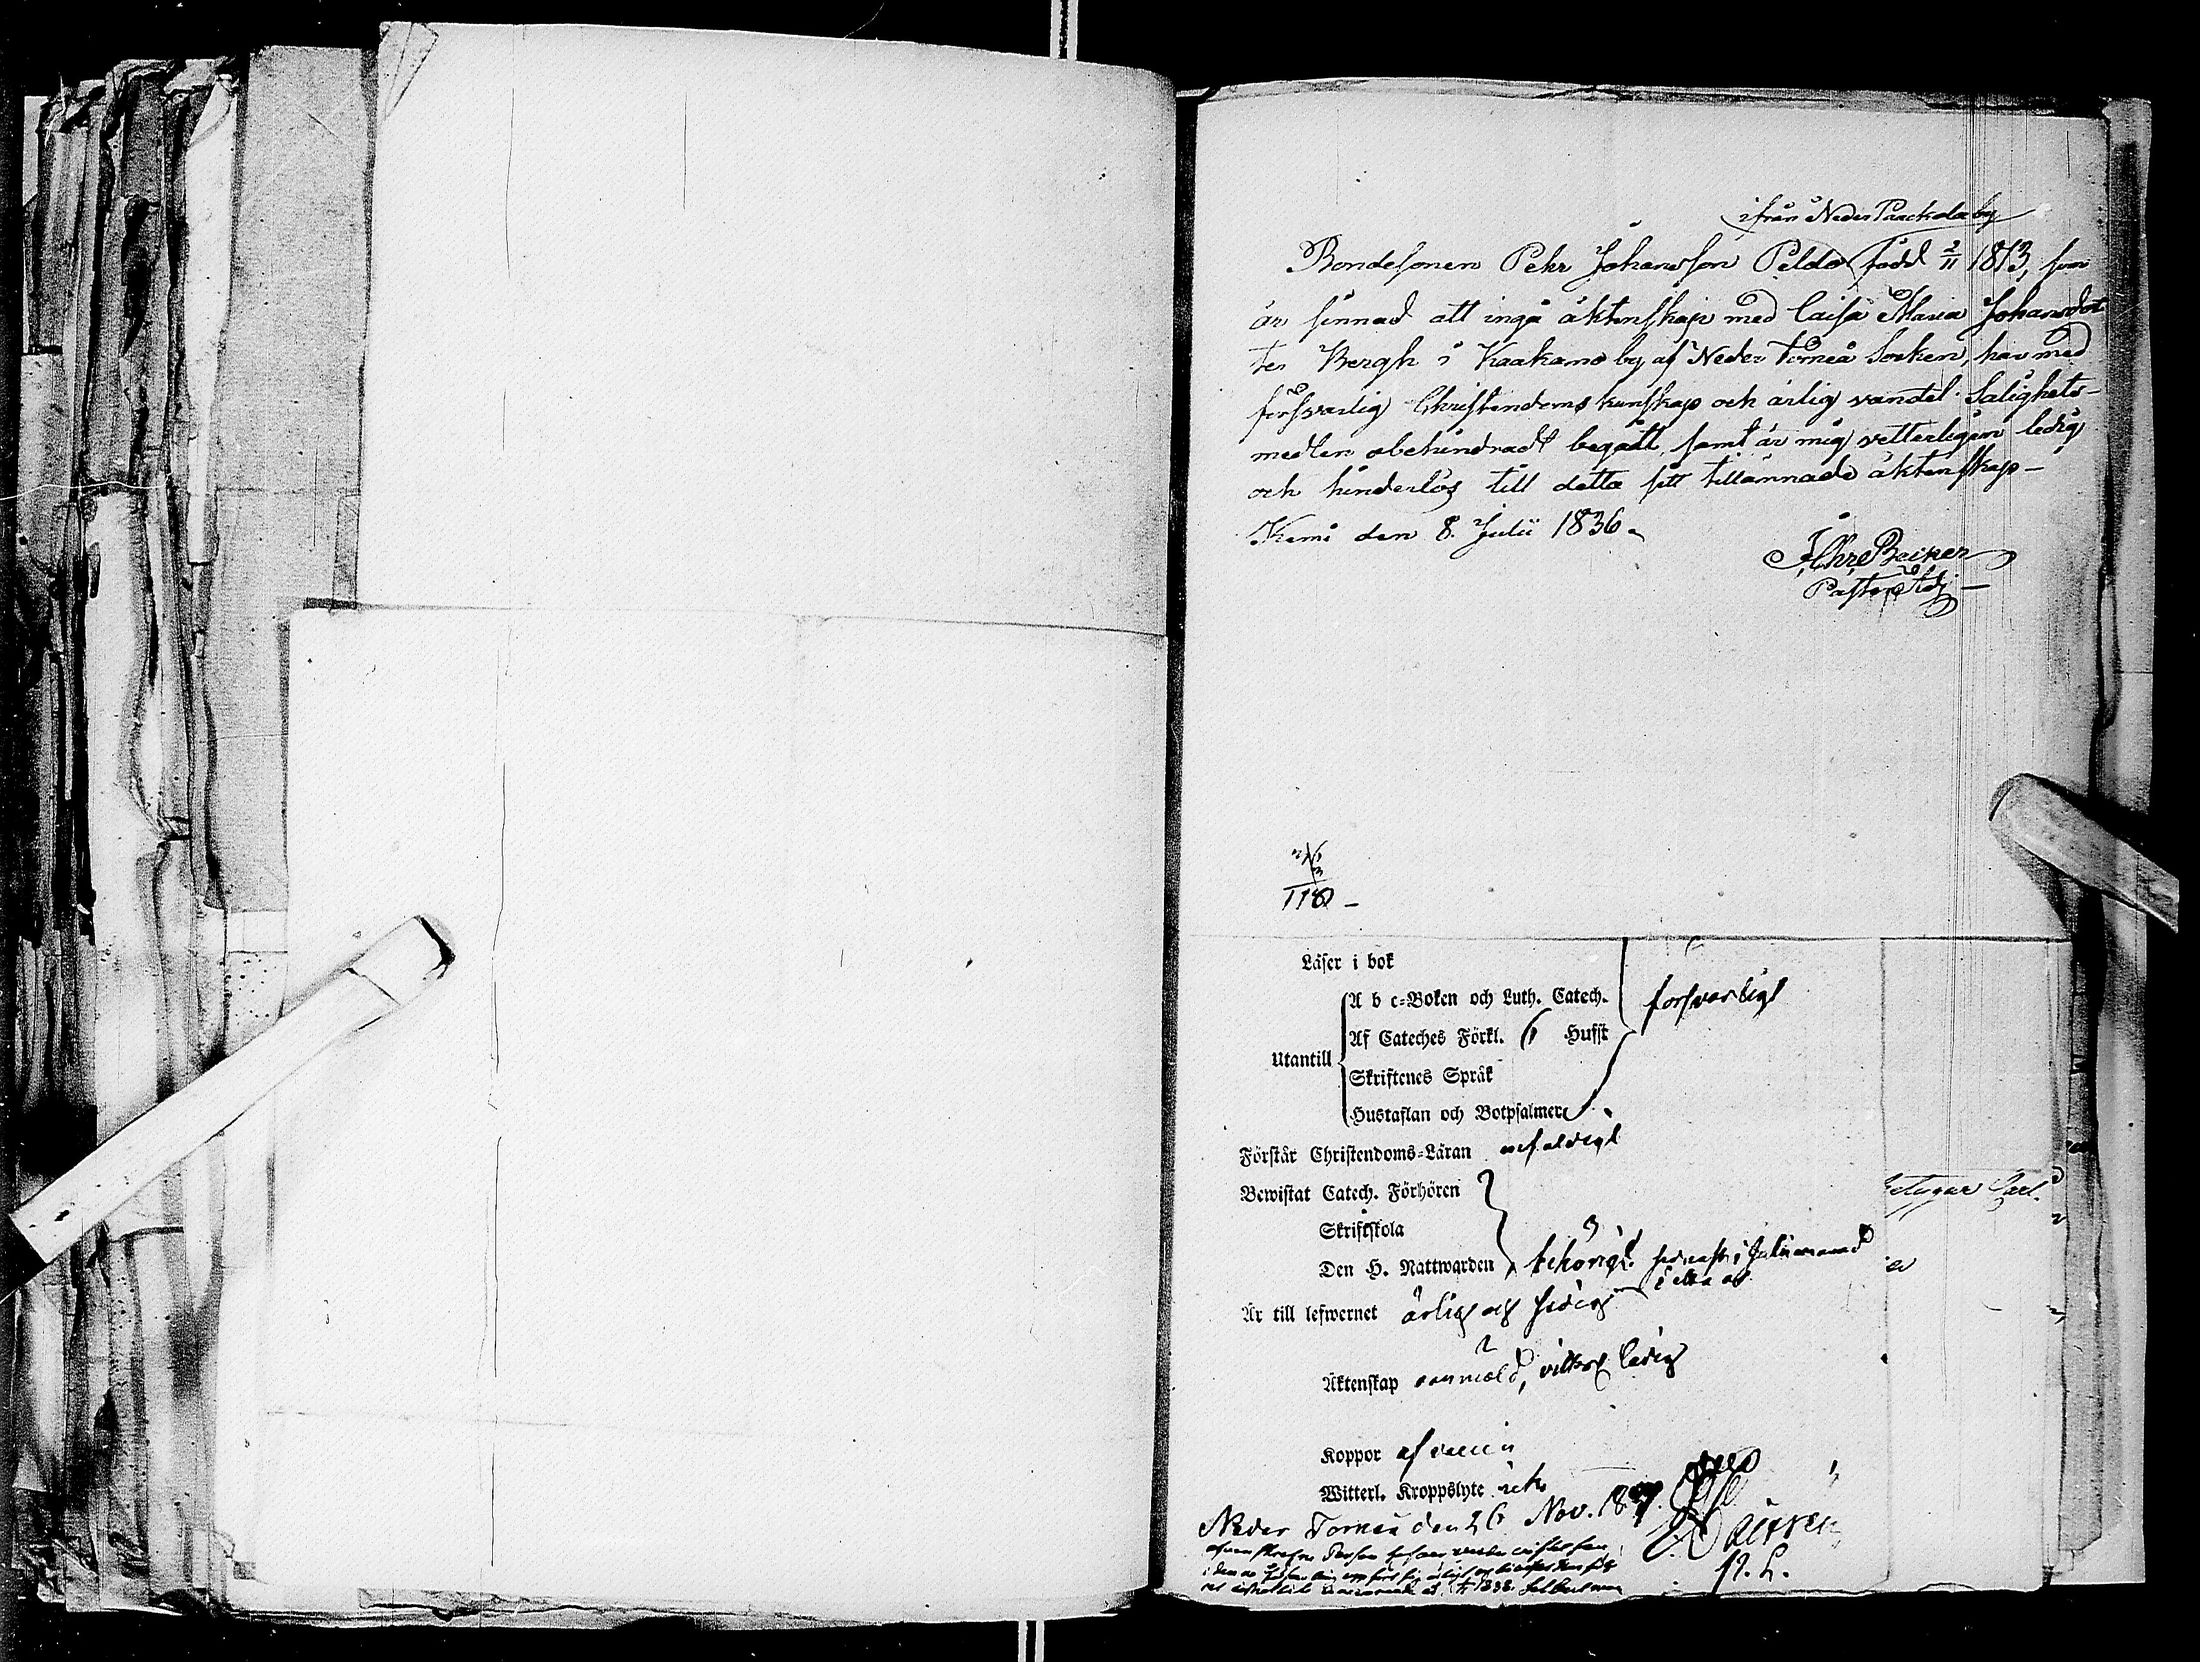 ifrån Neder Paackola by
Bondesonen Pehr Johansson Peldo född 2/11 1813, som
är sinnad att ingå äktenskap med Caisa Maria Johansdot
ter Bergh i Kaakamo by af Neder Torneå Socken, har med
försvarlig Christendoms kunskap och ärlig vandel Salighets-
medlen obehindradt begått, samt är mig vetterligen ledig
och hinderlös till detta sitt tillämnade äktenskap –
Kemi den 8. Julii 1836.
Past. Adj.
118 –
Läser i bok
A b c-Boken och Luth. Catech. försvarligt
Af Cateches Förkl. Hufst
Utantill
Skriftenes Språk
Hustaflan och Botpsalmer
Förstår Christendoms-Läran enfaldigt
Bewistat Catech. Förhören
Skriftskola
Den H. Nattwarden behörigt senast i Julii månad
Är till lefwernet ärlig och sedig
Äktenskap oanmäld, ledig
Koppor
Witterl. Kroppslyte
Neder Torneå den 26 Nov. 18
etygar Carl.